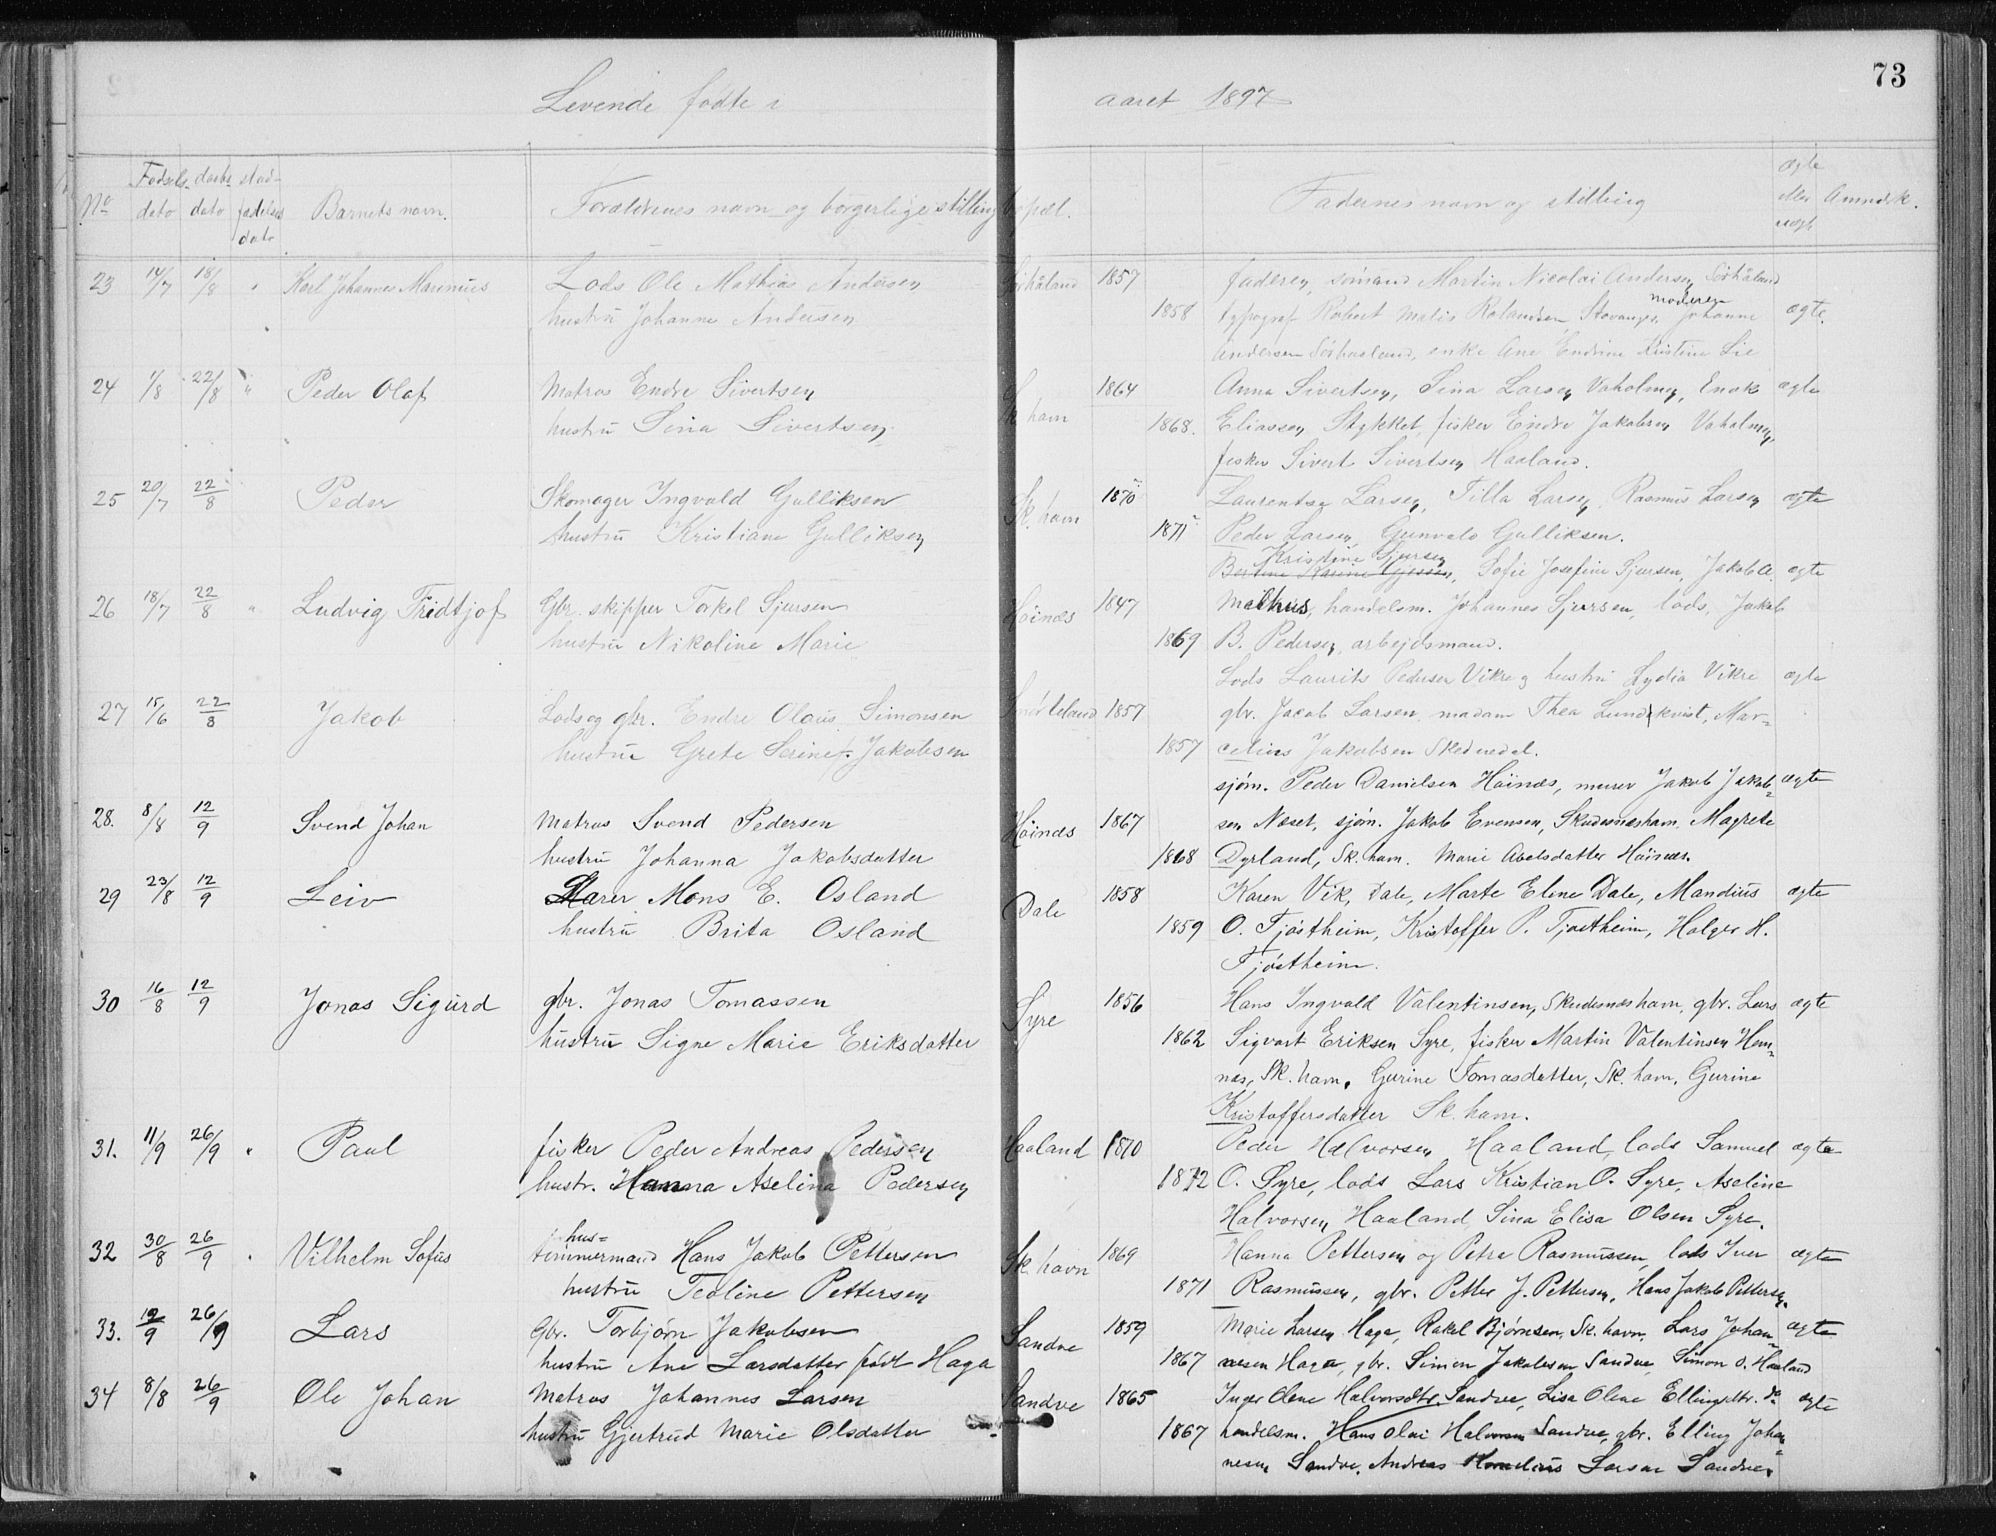 73
Levende fødte i aaret 1897
No Fødsels dato daabs dato stad fæstelses dato Barnets navn. Forældrenes navn og borgerlige stilling bopæl. Faddernes navn og stilling ægte eller uægt Anmærk.
23 14/7 18/8 " Karl Johannes Marinius Lods Ole Mathias Andersen Sørhåland 1857 faderen, sømand Martin Nicolai Andersen Sørhåland
hustru Johanne Andersen 1858 typograf Robert Malis Rolandsen, Stavanger, moderen Johanne ægte.
Andersen Sørhaaland, enke Ane Endrine Kristine Lie
24 1/8 22/8 " Peder Olaf Matros Endre Sivertsen Sk. havn 1864 Anna Sivertsen, Sina Larsen Vaholmen, Enok ægte
hustru Sina Sivertsen 1868. Eliassen Stykket, fisker Endre Jakobsen Vaholmen,
fisker Sivert Sivertsen Haaland.
25 20/7 22/8 Peder Skomager Ingvald Gulliksen Sk. havn 1870 Laurentse Larsen, Tilla Larsen, Rasmus Larsen ægte
hustru Kristiane Gulliksen 1871 Peder Larsen, Gunvald Gulliksen.
Kristine Sjursen, Sofie Josefine Sjursen, Jakob A. ægte
26 18/7 22/8 " Ludvig Fridtjof Gbr. skipper Torkel Sjursen Høinæs 1847 Mælhus, handelsm. Johannes Sjursen, lods, Jakob
hustru Nikoline Marie 1869 B. Pedersen, arbejdsmand.
Lods Laurits Pedersen Vikre og hustru Lydia Vikre ægte
27 15/6 22/8 Jakob Lods og gbr. Endre Olaus Simonsen 1857 gbr. Jacob Larsen, madam Thea Lundkvist, Mar-
hustru Grete Serine f. Jakobsen 1857 celius Jakobsen
sjøm. Peder Danielsen Høinæs, murer Jakob Jakob- ægte
28. 8/8 12/9 Svend Johan Matros Svend Pedersen Høinæs 1867 sen Næset, sjøm. Jakob Evensen, Skudesnæshavn, Magrete
hustru Johanna Jakobsdatter 1868 Dyrland, Sk. havn. Marie Abelsdatter Høinæs.
29 23/8 12/9 Leiv Lærer Mons E. Osland Dale 1858 Karen Vik, Dale, Marte Elene Dale, Mandius ægte
hustru Brita Osland 1859 O. Tjøstheim, Kristoffer P. Tjøstheim, Holger H.
Tjøstheim.
30 16/8 12/9 Jonas Sigurd gbr. Jonas Tomassen Syre 1856 Hans Ingvald Valentinsen, Skudesnæshavn, gbr. Lars ægte
hustru Signe Marie Eriksdatter 1862 Sigvart Eriksen Syre, fisker Martin Valentinsen Hem-
næs, Sk. havn, Gurine Tomasdatter, Sk. havn, Gurine
Kristoffersdatter Sk. havn.
31. 11/9 26/9 " Paul fisker Peder Andreas Pedersen Haaland 1870 Peder Halvorsen Haaland, lods Samuel ægte
hustr. Hanna Aselina Pedersen 1872 O. Syre, lods Lars Kristian O. Syre, Aseline
Halvorsen Haaland, Sina Elisa Olsen Syre.
32 30/8 26/9 " Vilhelm Sofus hus-tømmermand Hans Jakob Pettersen Sk. havn 1869 Hanna Pettersen og Petra Rasmussen, lods Iver ægte
hustru Teoline Pettersen 1871 Rasmussen, gbr. Petter J. Pettersen, Hans Jakob Pettersen.
33. 12/9 26/9 Lars Gbr. Torbjørn Jakobsen Sandve 1859 Marie Larsen Haga, Rakel Bjørnsen, Sk. havn, Lars Johan- ægte
hustru Ane Larsdatter født Haga 1867 nesen Haga, gbr. Simon Jakobsen Sandve, Simon S. Haaland
34 8/8 26/9 Ole Johan Matros Johannes Larsen Sandve 1865 Inger Olene Halvorsdtr. Sandve, Lisa Olene Ellingsdtr. do ægte
hustru Gjertrud Marie Olsdatter 1867 handelsm. Hans Olai Halvorsen Sandve, gbr. Elling Johan-
nesen Sandve, Andreas Kornelius Larsen Sandve.